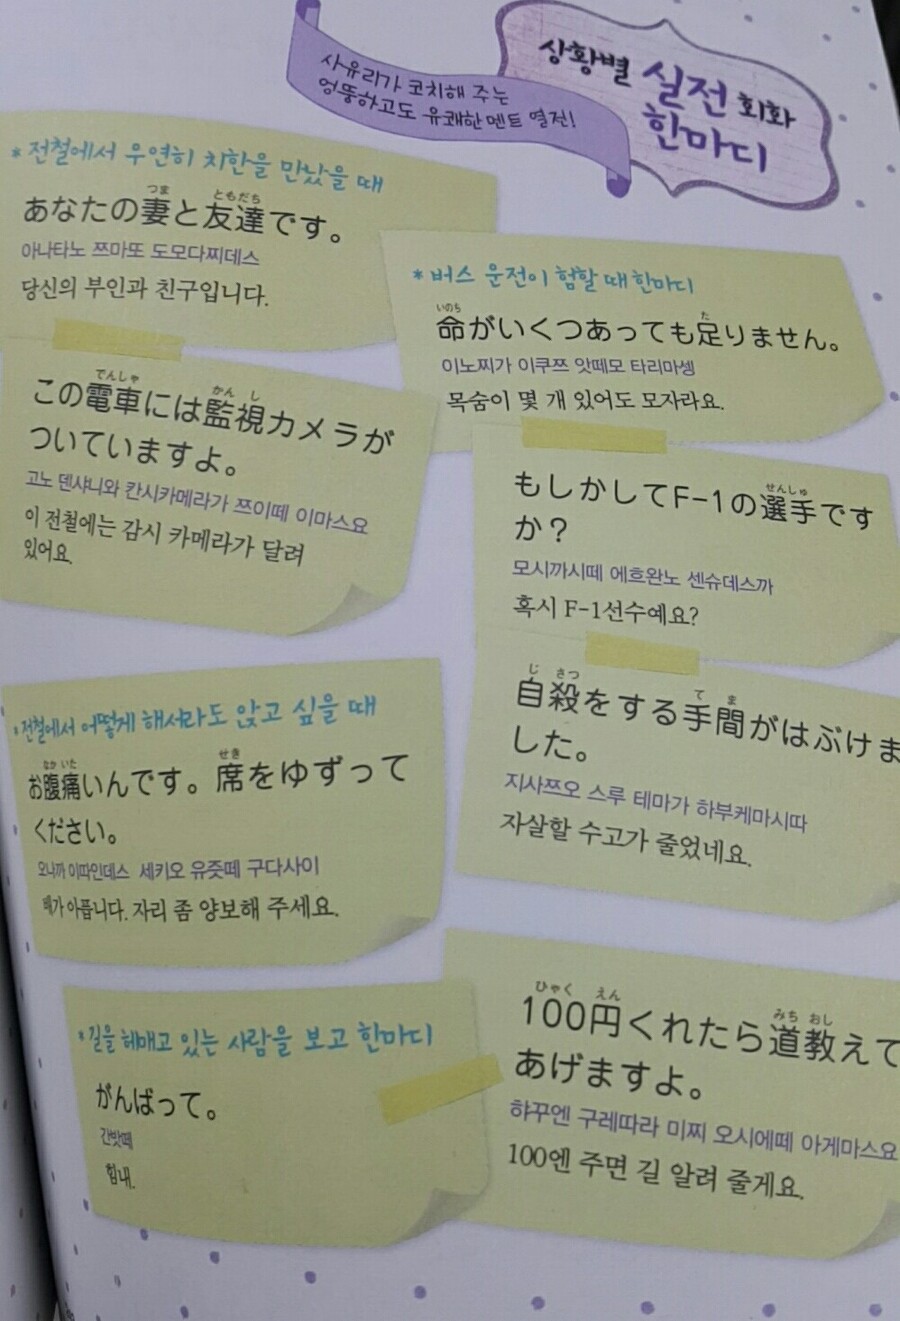 상황별 실전 회화
한마디
사유리가 코치해 주는
엉뚱하고도 유쾌한 멘트 열전!
*전철에서 우연히 치한을 만났을 때
つま ともだち
あなたの妻と友達です。
아나타노 쯔마또 도모다찌데스
당신의 부인과 친구입니다.
でんしゃ かんし
この電車には監視カメラが
ついていますよ。
고노 덴샤니와 칸시카메라가 쯔이떼 이마스요
이 전철에는 감시 카메라가 달려
있어요.
*버스 운전이 험할 때 한마디
いのち た
命がいくつあっても足りません。
이노찌가 이쿠쯔 앗떼모 타리마셍
목숨이 몇 개 있어도 모자라요.
せんしゅ
もしかしてF-1の選手です
か？
모시까시떼 에흐완노 센슈데스까
혹시 F-1선수예요?
じ さつ て ま
自殺をする手間がはぶけま
した。
지사쯔오 스루 테마가 하부케마시따
자살할 수고가 줄었네요.
*전철에서 어떻게 해서라도 앉고 싶을 때
なか いた せき
お腹痛いんです。席をゆずって
ください。
오나까 이따인데스 세키오 유즛떼 구다사이
배가 아픕니다. 자리 좀 양보해 주세요.
*길을 헤매고 있는 사람을 보고 한마디
がんばって。
간밧떼
힘내.
ひゃく えん みち おし
100円くれたら道教えて
あげますよ。
햐꾸엔 구레따라 미찌 오시에떼 아게마스요
100엔 주면 길 알려 줄게요.